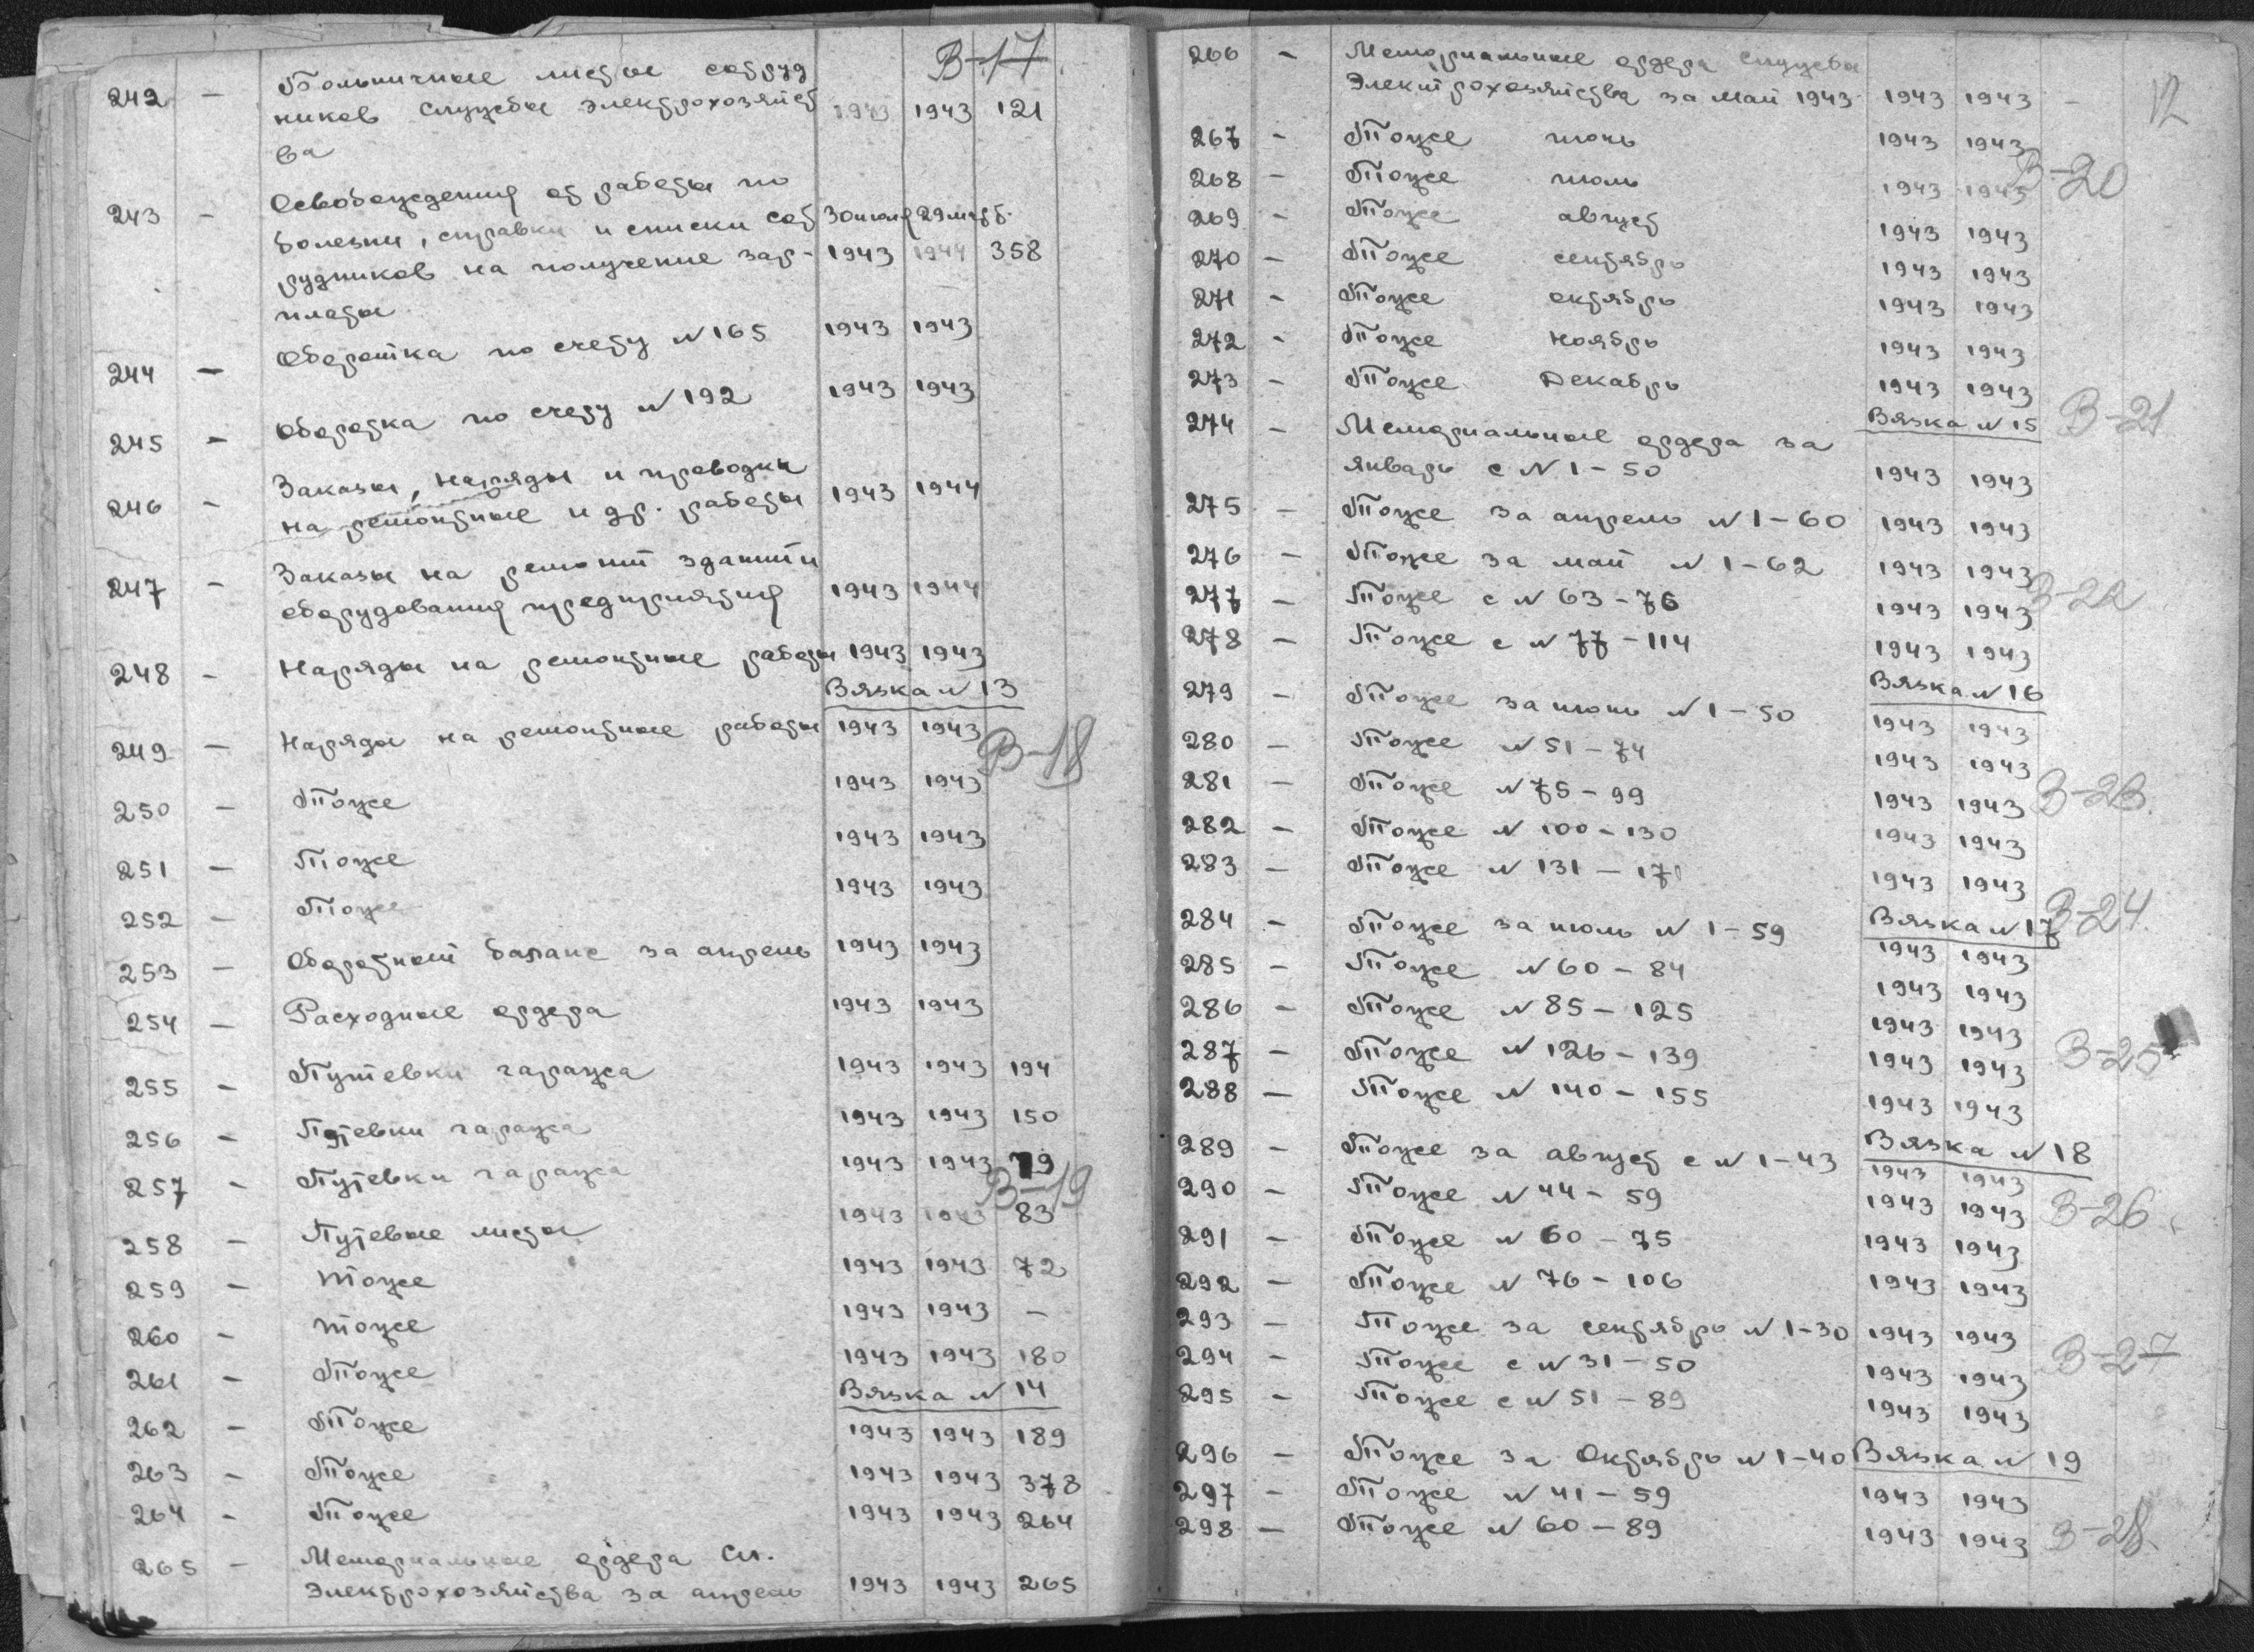 В-17
242 - Больничные листы сотруд
ников службы электрохозяйст 1943 1943 121
ва
243 - Освобождения от работы по
болезни, справки и списки сот 30 июля 29 
рудников на получение зар- 1943 1944 358
платы
244 - Оборотка по счету №165 1943 1943
245 - Оборотка по счету №192 1943 1943
246 - Заказы, наряды и проводки
на ремонтные и др. работы 1943 1944
247 - Заказы на ремонт зданий и
оборудования предприятия 1943 1944
248 - Наряды на ремонтные работы 1943 1943
Вязка №13
249 - Наряды на ремонтные работы 1943 1943
В-18
250 - Тоже 1943 1943
251 - Тоже 1943 1943
252 - Тоже 1943 1943
253 - Оборотный баланс за апрель 1943 1943
254 - Расходные ордера 1943 1943
255 - Путевки гаража 1943 1943 194
256 - Путевки гаража 1943 1943 150
257 - Путевки гаража 1943 1943 79
В-19
258 - Путевые листы 1943 1943 83
259 - тоже 1943 1943 72
260 - тоже 1943 1943 -
261 - Тоже 1943 1943 180
Вязка №14
262 - Тоже 1943 1943 189
263 - Тоже 1943 1943 378
264 - Тоже 1943 1943 264
265 - Мемориальные ордера Сл.
Электрохозяйства за апрель 1943 1943 265
12
266 - Мемориальные ордера службы
Электрохозяйства за май 1943 1943 1943 -
267 - Тоже июнь 1943 1943
В-20
268 - Тоже июль 1943 1943
269 - Тоже август 1943 1943
270 - Тоже сентябрь 1943 1943
271 - Тоже октябрь 1943 1943
272 - Тоже ноябрь 1943 1943
273 - Тоже Декабрь 1943 1943
Вязка №15
В-21
274 - Мемориальные ордера за
январь с №1-50 1943 1943
275 - Тоже за апрель №1-60 1943 1943
276 - Тоже за май №1-62 1943 1943
В-22
277 - Тоже с №63-76 1943 1943
278 - Тоже с №77-114 1943 1943
Вязка №16
279 - Тоже за июнь №1-50 1943 1943
280 - Тоже №51-74 1943 1943
281 - Тоже №75-99 1943 1943
В-23
282 - Тоже №100-130 1943 1943
283 - Тоже №131-170 1943 1943
В-24
Вязка №17
284 - Тоже за июль №1-59 1943 1943
285 - Тоже №60-84 1943 1943
286 - Тоже №85-125 1943 1943
287 - Тоже №126-139 1943 1943
В-25
288 - Тоже №140-155 1943 1943
Вязка №18
289 - Тоже за август с №1-43 1943 1943
290 - Тоже №44-59 1943 1943
В-26
291 - Тоже №60-75 1943 1943
292 - Тоже №76-106 1943 1943
293 - Тоже за сентябрь №1-30 1943 1943
В-27
294 - Тоже с №31-50 1943 1943
295 - Тоже с №51-89 1943 1943
296 - Тоже за Октябрь №1-40 Вязка №19
297 - Тоже №41-59 1943 1943
298 - Тоже №60-89 1943 1943
В-28